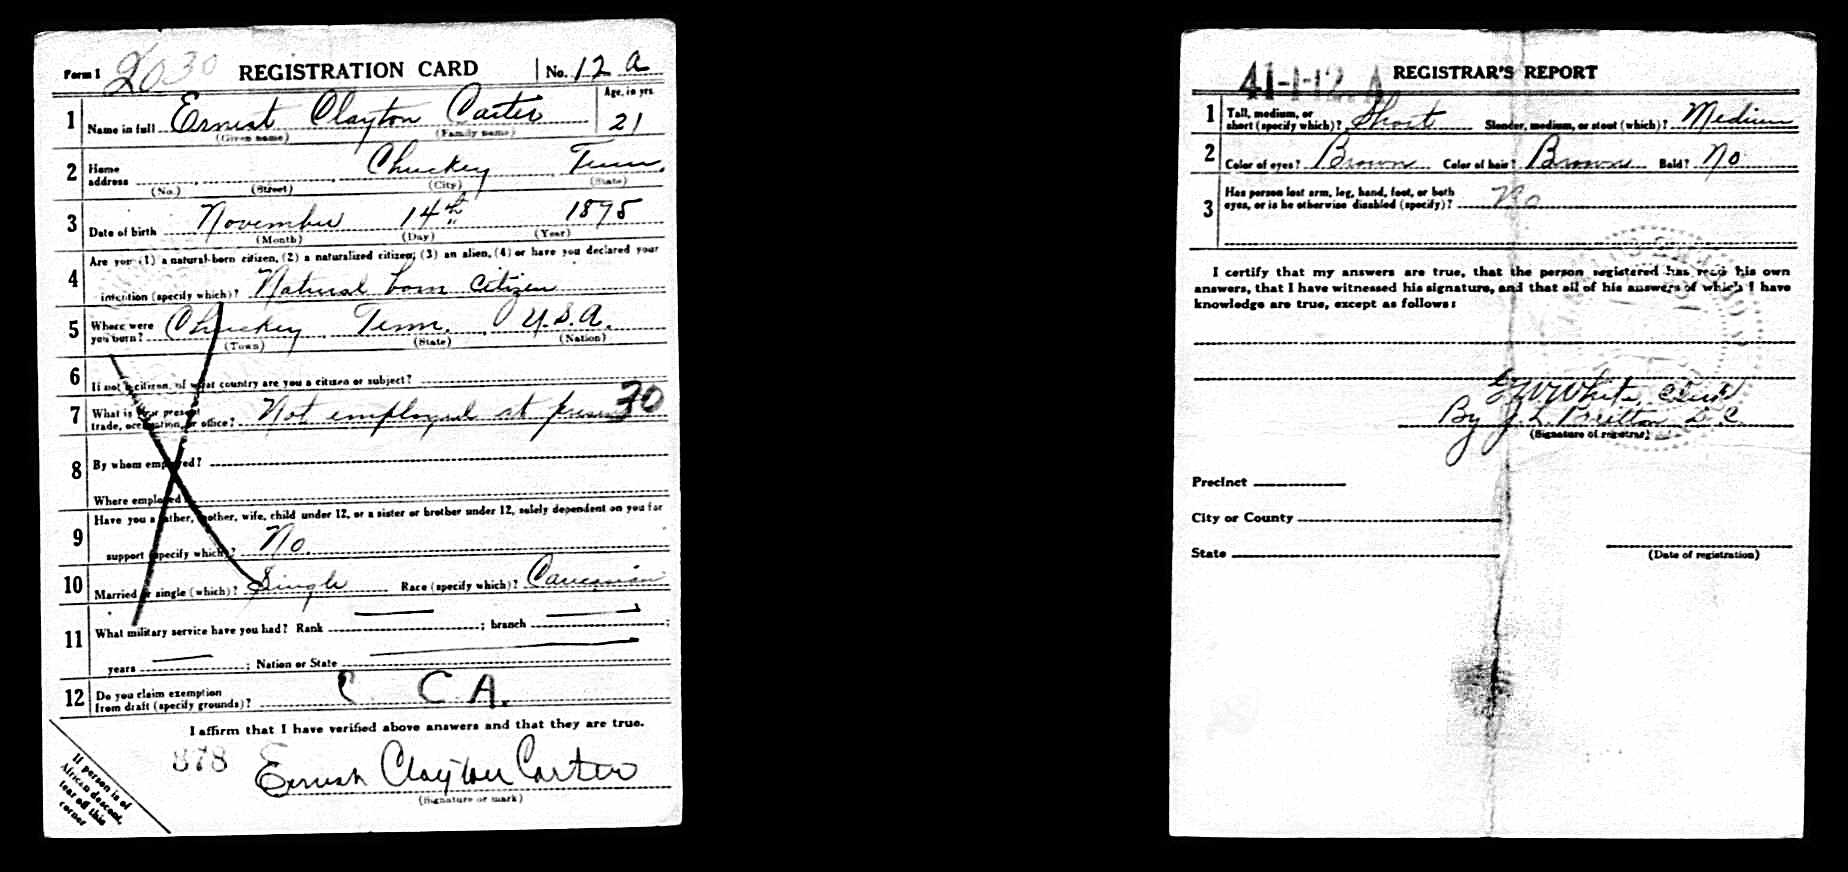 Form 1 2030 REGISTRATION CARD No. 12 A
1 Name in full Ernest Clayton Carter Age, in yrs. 21
(Given name) (Family name)
2 Home address Chuckey Tenn.
(No.) (Street) (City) (State)
3 Date of birth November 14th 1895
(Month) (Day) (Year)
4 Are you (1) a natural-born citizen, (2) a naturalized citizen, (3) an alien, (4) or have you declared your
intention (specify which)? Natural born citizen
5 Where were you born? Chuckey Tenn. U.S.A.
(Town) (State) (Nation)
6 If not a citizen, of what country are you a citizen or subject?
7 What is your present trade, occupation, or office? Not employed at present 30
8 By whom employed?
Where employed?
9 Have you a father, mother, wife, child under 12, or a sister or brother under 12, solely dependent on you for
support (specify which)? No.
10 Married or single (which)? Single Race (specify which)? Caucasian
11 What military service have you had? Rank ; branch ;
years ; Nation or State
12 Do you claim exemption from draft (specify grounds)? C C A.
I affirm that I have verified above answers and that they are true.
878 Ernest Clayton Carter
(Signature or mark)
If person is of
African descent,
tear off this
corner
41-1-12. A REGISTRAR'S REPORT
1 Tall, medium, or short (specify which)? Short Slender, medium, or stout (which)? Medium
2 Color of eyes? Brown Color of hair? Brown Bald? No
3 Has person lost arm, leg, hand, foot, or both
eyes, or is he otherwise disabled (specify)? No
I certify that my answers are true, that the person registered has read his own
answers, that I have witnessed his signature, and that all of his answers of which I have
knowledge are true, except as follows:
White, Clerk
By J. L. Britton D.C.
(Signature of registrar)
Precinct
City or County
State
(Date of registration)